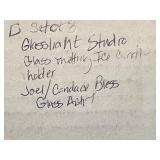 Set of 8
Glasslight Studio
Glass melting Ice Candle
holder
Joel/Candace Bless
Glass Artist